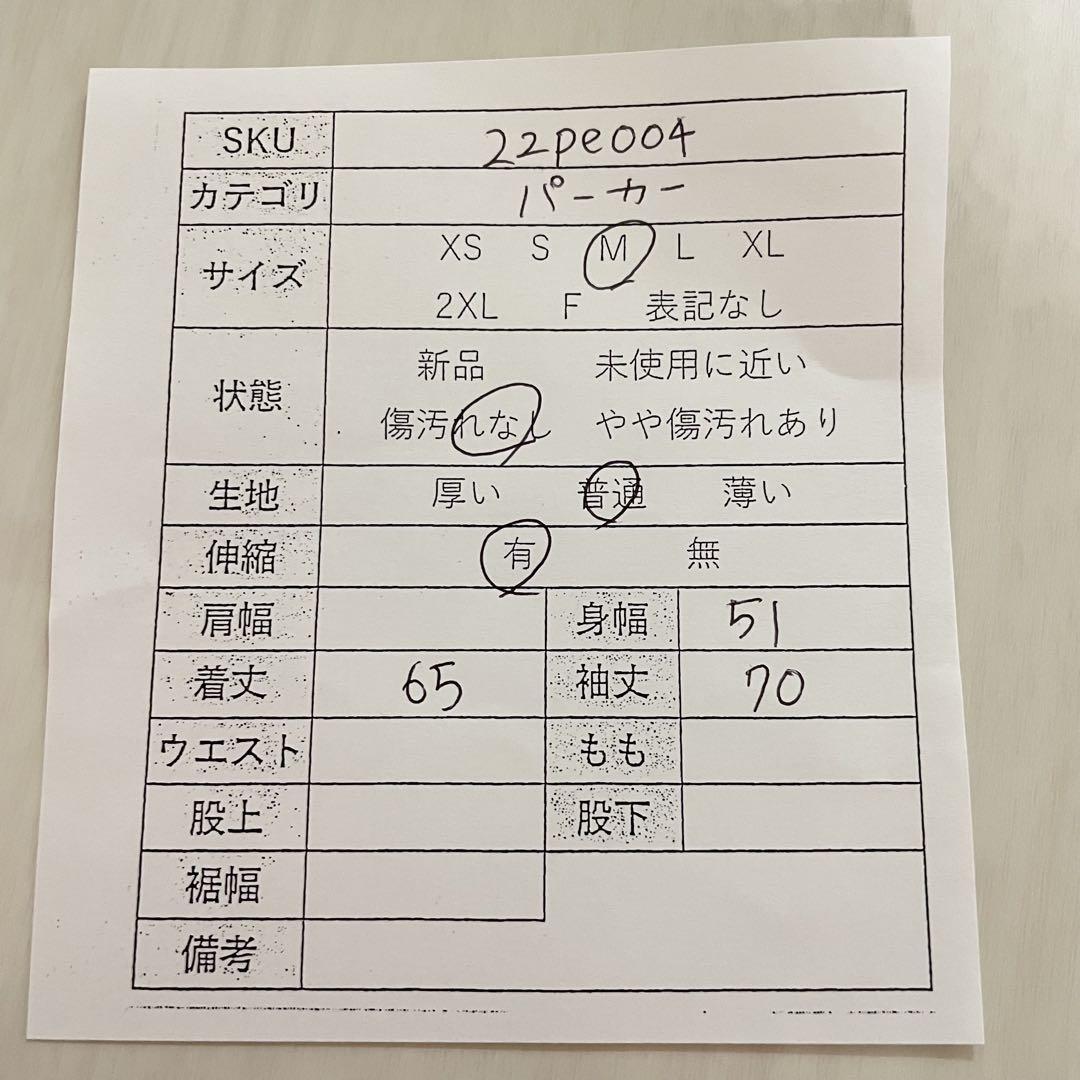 SKU 22pe004
カテゴリ パーカー
サイズ XS S M L XL
2XL F 表記なし
状態 新品 未使用に近い
傷汚れなし やや傷汚れあり
生地 厚い 普通 薄い
伸縮 有 無
肩幅 身幅 51
着丈 65 袖丈 70
ウエスト もも
股上 股下
裾幅
備考